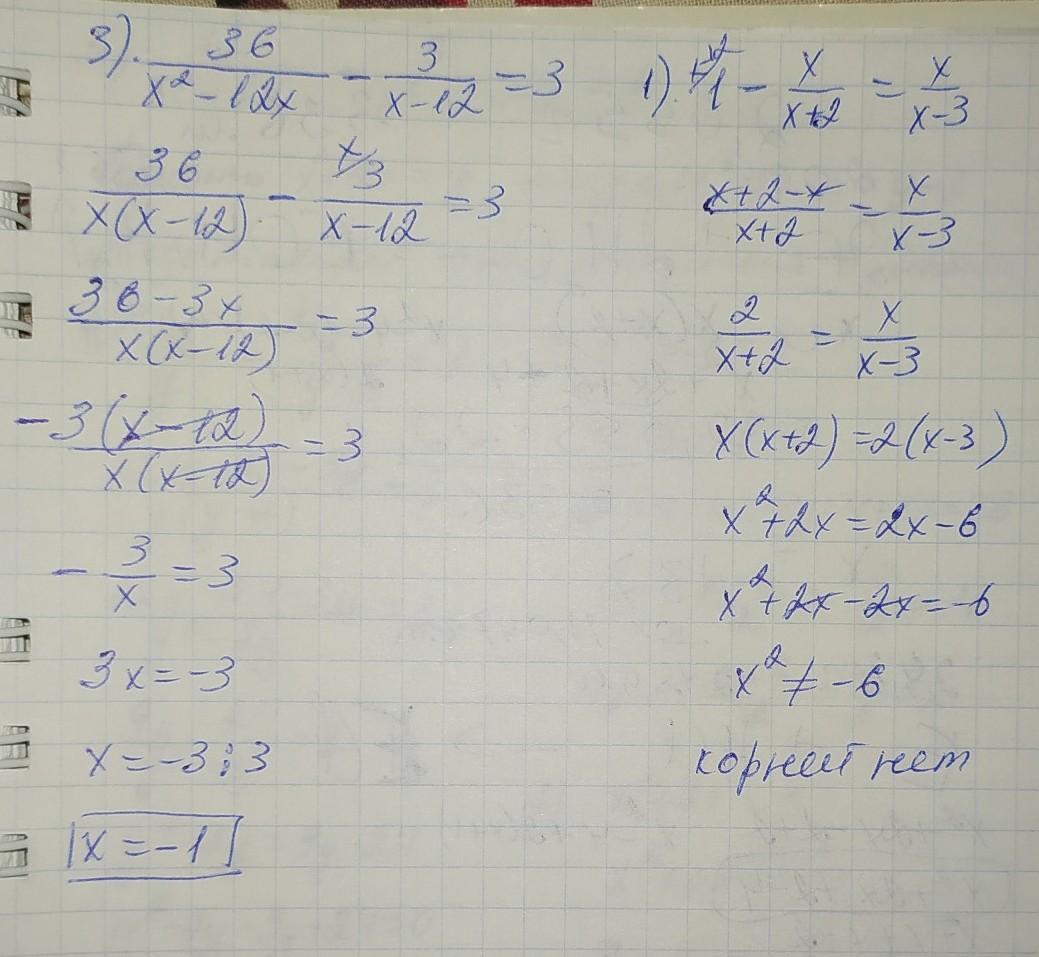 3). 36/(x² - 12x) - 3/(x - 12) = 3
36/(x(x - 12)) - 3/(x - 12) = 3
(36 - 3x)/(x(x - 12)) = 3
-3(x - 12)/(x(x - 12)) = 3
- 3/x = 3
3x = -3
x = -3 : 3
x = -1
1). 1 - x/(x+2) = x/(x-3)
(x+2-x)/(x+2) = x/(x-3)
2/(x+2) = x/(x-3)
x(x+2) = 2(x-3)
x² + 2x = 2x - 6
x² + 2x - 2x = -6
x² ≠ -6
корней нет